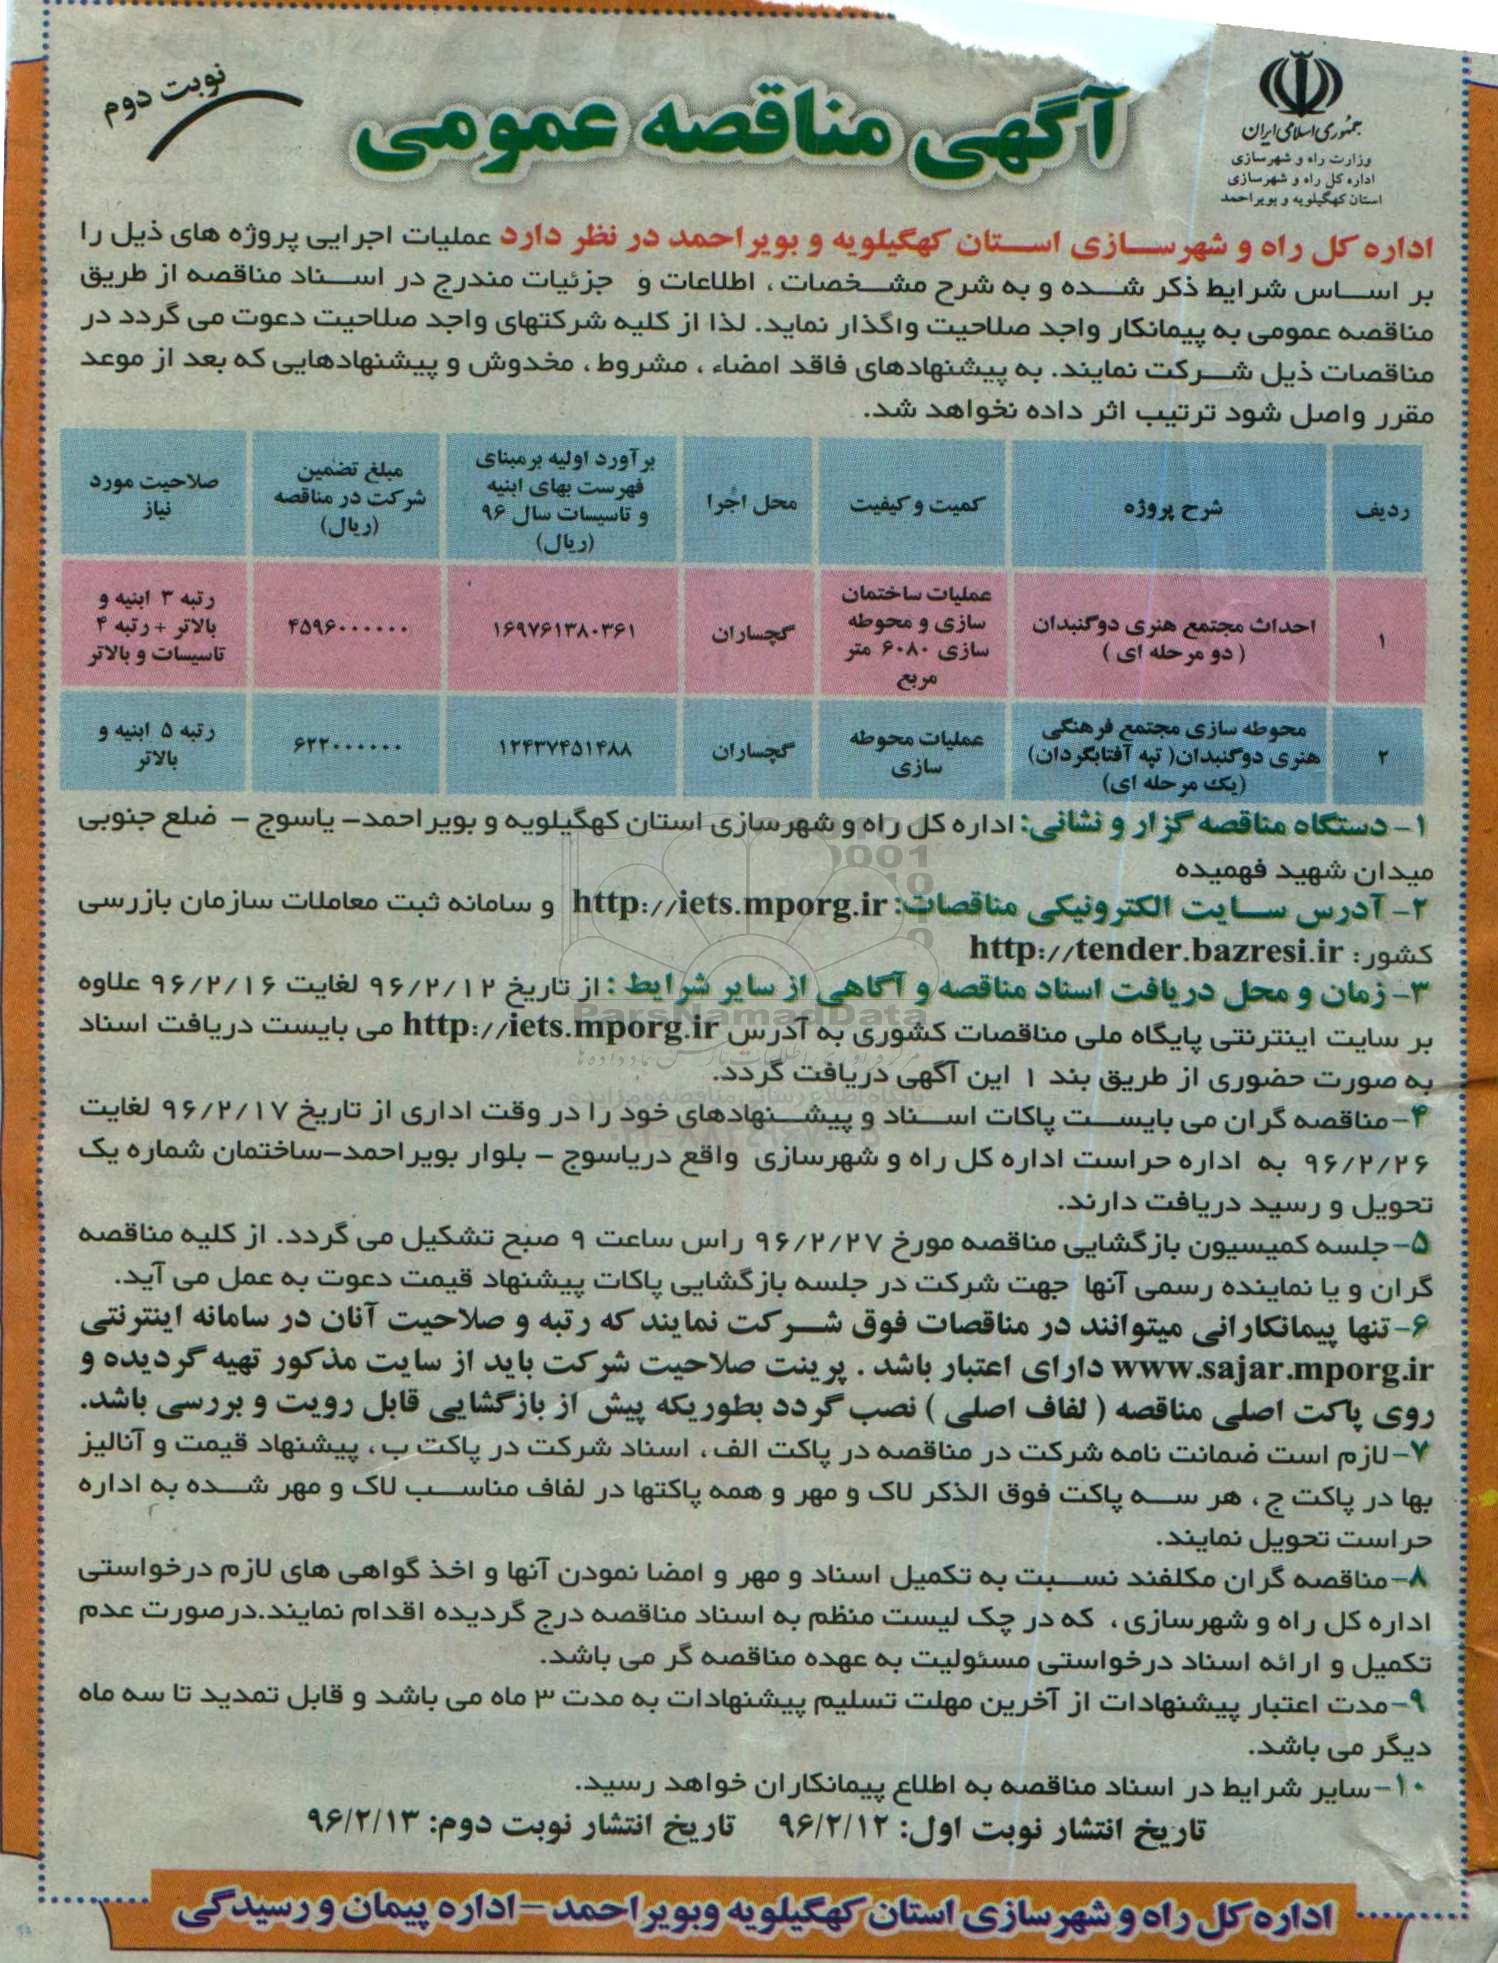 جمهوری اسلامی ایران
وزارت راه و شهرسازی
اداره کل راه و شهرسازی
استان کهگیلویه و بویراحمد
آگهی مناقصه عمومی
نوبت دوم
اداره کل راه و شهرسازی استان کهگیلویه و بویراحمد در نظر دارد عملیات اجرایی پروژه های ذیل را
بر اساس شرایط ذکر شده و به شرح مشخصات ، اطلاعات و جزئیات مندرج در اسناد مناقصه از طریق
مناقصه عمومی به پیمانکار واجد صلاحیت واگذار نماید. لذا از کلیه شرکتهای واجد صلاحیت دعوت می گردد در
مناقصات ذیل شرکت نمایند. به پیشنهادهای فاقد امضاء ، مشروط ، مخدوش و پیشنهادهایی که بعد از موعد
مقرر واصل شود ترتیب اثر داده نخواهد شد.
ردیف
شرح پروژه
کمیت و کیفیت
محل اجرا
برآورد اولیه برمبنای
فهرست بهای ابنیه
و تاسیسات سال ۹۶
(ریال)
مبلغ تضمین
شرکت در مناقصه
(ریال)
صلاحیت مورد
نیاز
۱
احداث مجتمع هنری دوگنبدان
( دو مرحله ای )
عملیات ساختمان
سازی و محوطه
سازی ۶۰۸۰ متر
مربع
گچساران
۱۶۹۷۶۱۳۸۰۳۶۱
۴۵۹۶۰۰۰۰۰۰
رتبه ۳ ابنیه و
بالاتر + رتبه ۴
تاسیسات و بالاتر
۲
محوطه سازی مجتمع فرهنگی
هنری دوگنبدان( تپه آفتابگردان)
(یک مرحله ای)
عملیات محوطه
سازی
گچساران
۱۲۴۳۷۴۵۱۴۸۸
۶۲۲۰۰۰۰۰۰
رتبه ۵ ابنیه و
بالاتر
۱- دستگاه مناقصه گزار و نشانی: اداره کل راه و شهرسازی استان کهگیلویه و بویراحمد– یاسوج – ضلع جنوبی
میدان شهید فهمیده
۲- آدرس سایت الکترونیکی مناقصات: http://iets.mporg.ir و سامانه ثبت معاملات سازمان بازرسی
کشور: http://tender.bazresi.ir
۳- زمان و محل دریافت اسناد مناقصه و آگاهی از سایر شرایط : از تاریخ ۹۶/۲/۱۲ لغایت ۹۶/۲/۱۶ علاوه
بر سایت اینترنتی پایگاه ملی مناقصات کشوری به آدرس http://iets.mporg.ir می بایست دریافت اسناد
به صورت حضوری از طریق بند ۱ این آگهی دریافت گردد.
۴-مناقصه گران می بایست پاکات اسناد و پیشنهادهای خود را در وقت اداری از تاریخ ۹۶/۲/۱۷ لغایت
۹۶/۲/۲۶ به اداره حراست اداره کل راه و شهرسازی واقع دریاسوج – بلوار بویراحمد–ساختمان شماره یک
تحویل و رسید دریافت دارند.
۵-جلسه کمیسیون بازگشایی مناقصه مورخ ۹۶/۲/۲۷ راس ساعت ۹ صبح تشکیل می گردد. از کلیه مناقصه
گران و یا نماینده رسمی آنها جهت شرکت در جلسه بازگشایی پاکات پیشنهاد قیمت دعوت به عمل می آید.
۶-تنها پیمانکارانی میتوانند در مناقصات فوق شرکت نمایند که رتبه و صلاحیت آنان در سامانه اینترنتی
www.sajar.mporg.ir دارای اعتبار باشد . پرینت صلاحیت شرکت باید از سایت مذکور تهیه گردیده و
روی پاکت اصلی مناقصه ( لفاف اصلی ) نصب گردد بطوریکه پیش از بازگشایی قابل رویت و بررسی باشد.
۷-لازم است ضمانت نامه شرکت در مناقصه در پاکت الف ، اسناد شرکت در پاکت ب ، پیشنهاد قیمت و آنالیز
بها در پاکت ج ، هر سه پاکت فوق الذکر لاک و مهر و همه پاکتها در لفاف مناسب لاک و مهر شده به اداره
حراست تحویل نمایند.
۸-مناقصه گران مکلفند نسبت به تکمیل اسناد و مهر و امضا نمودن آنها و اخذ گواهی های لازم درخواستی
اداره کل راه و شهرسازی ، که در چک لیست منظم به اسناد مناقصه درج گردیده اقدام نمایند.درصورت عدم
تکمیل و ارائه اسناد درخواستی مسئولیت به عهده مناقصه گر می باشد.
۹-مدت اعتبار پیشنهادات از آخرین مهلت تسلیم پیشنهادات به مدت ۳ ماه می باشد و قابل تمدید تا سه ماه
دیگر می باشد.
۱۰-سایر شرایط در اسناد مناقصه به اطلاع پیمانکاران خواهد رسید.
تاریخ انتشار نوبت اول: ۹۶/۲/۱۲ تاریخ انتشار نوبت دوم: ۹۶/۲/۱۳
اداره کل راه و شهرسازی استان کهگیلویه وبویراحمد –اداره پیمان و رسیدگی
ParsNamadData